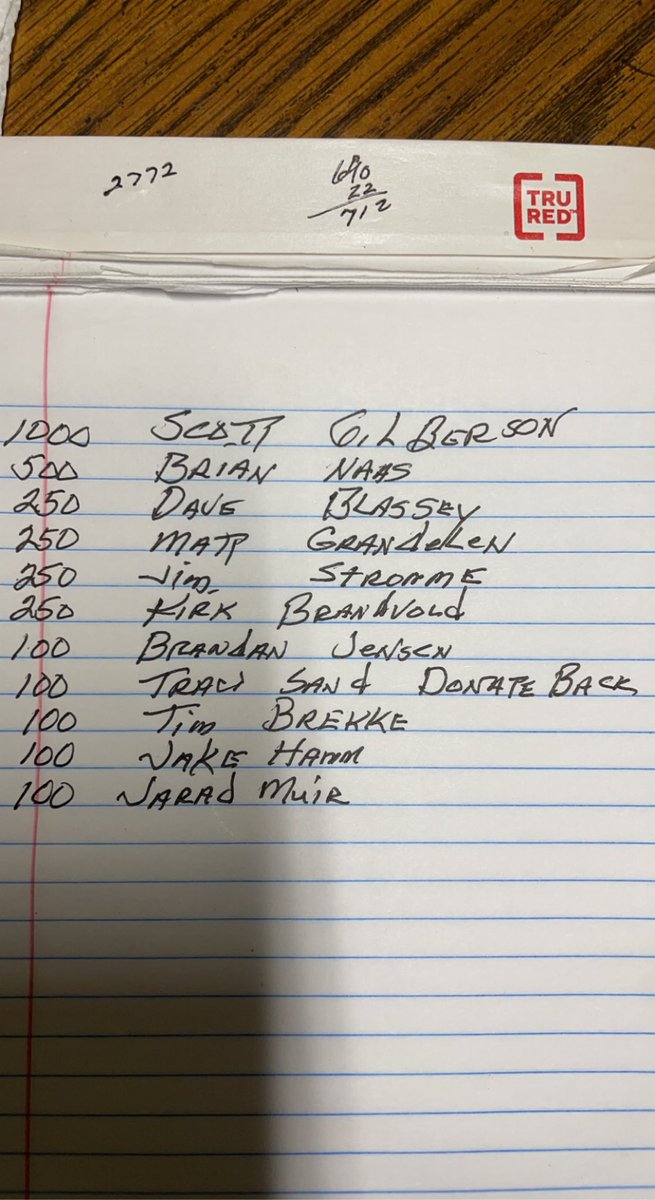 2772
690
22
712
TRU
RED
1000 SCOTT GILBERSON
500 BRIAN NAAS
250 DAVE BLASSEY
250 MATT GRANdeLeN
250 Jim STROMME
250 KIRK BRANdVOLd
100 BRANdAN JeNSeN
100 TRACI SANd DONATE BACK
100 Tim BREKKE
100 JAKE HAMM
100 JARAd MuiR